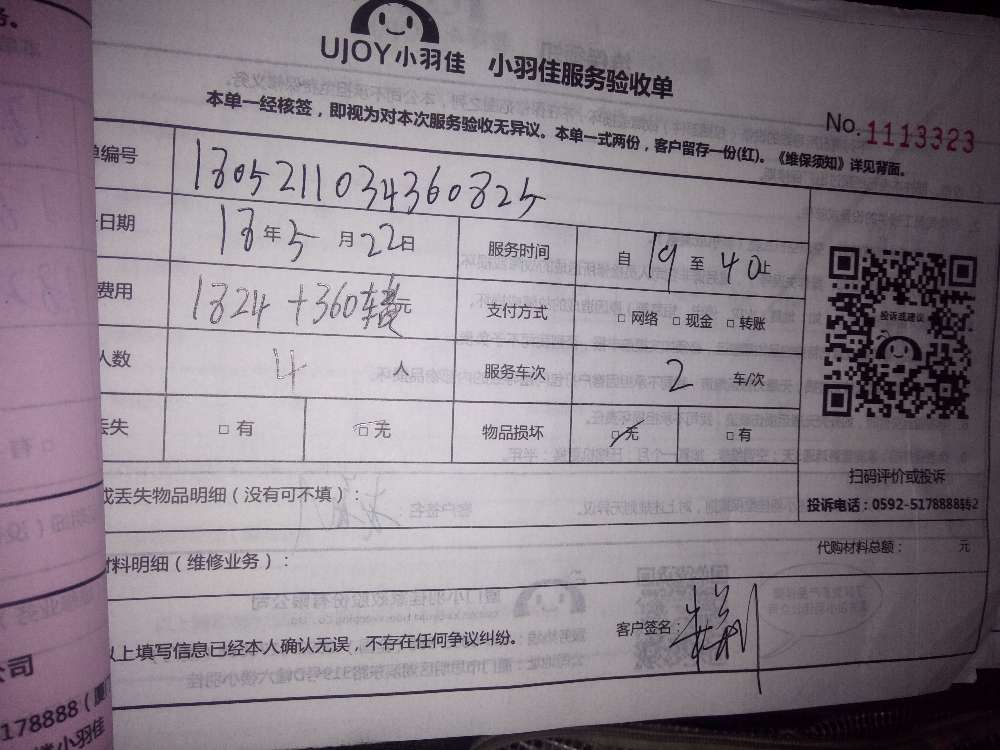 UJOY小羽佳 小羽佳服务验收单
No.1113323
本单一经核签，即视为对本次服务验收无异议。本单一式两份，客户留存一份(红)。《维保须知》详见背面。
单编号 1805211034360825
日期 18年5月22日 服务时间 自19至40止
费用 1824+360 元 支付方式 □网络 □现金 □转账
投诉或建议
人数 4人 服务车次 2 车/次
丢失 □有 □无 物品损坏 □无 □有
扫码评价或投诉
或丢失物品明细（没有可不填）：
投诉电话：0592-5178888
代购材料总额： 元
材料明细（维修业务）：
客户签名：
以上填写信息已经本人确认无误，不存在任何争议纠纷。
公司
5178888（厦门
小羽佳